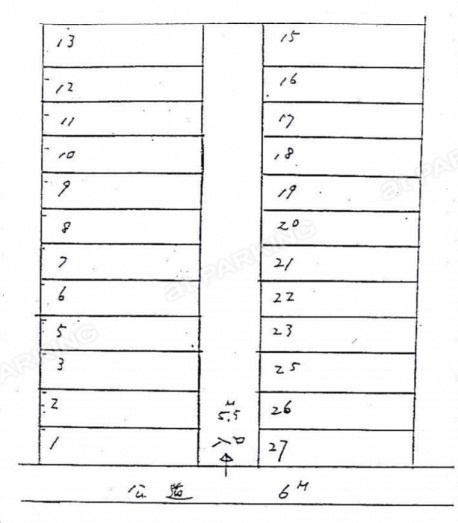 13
12
11
10
9
8
7
6
5
3
2
1
15
16
17
18
19
20
21
22
23
25
26
27
5.5M
入口
公道 6M
at PARKING
at PARKING